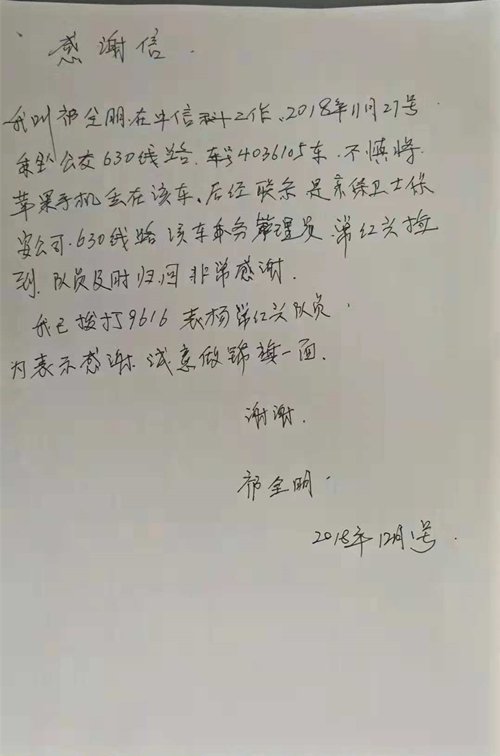 感谢信.
我叫祁全明.在中信科工作、2018年11月27号
乘坐公交630线路.车号4036105车.不慎将
苹果手机丢在该车、后经联系是京保卫士保
安公司.630线路该车乘务管理员 常红兴捡
到.队员及时归回 非常感谢.
我已拨打9616 表扬常红兴队员.
为表示感谢.诚意做锦旗一面.
谢谢.
祁全明.
2018年12月1号.